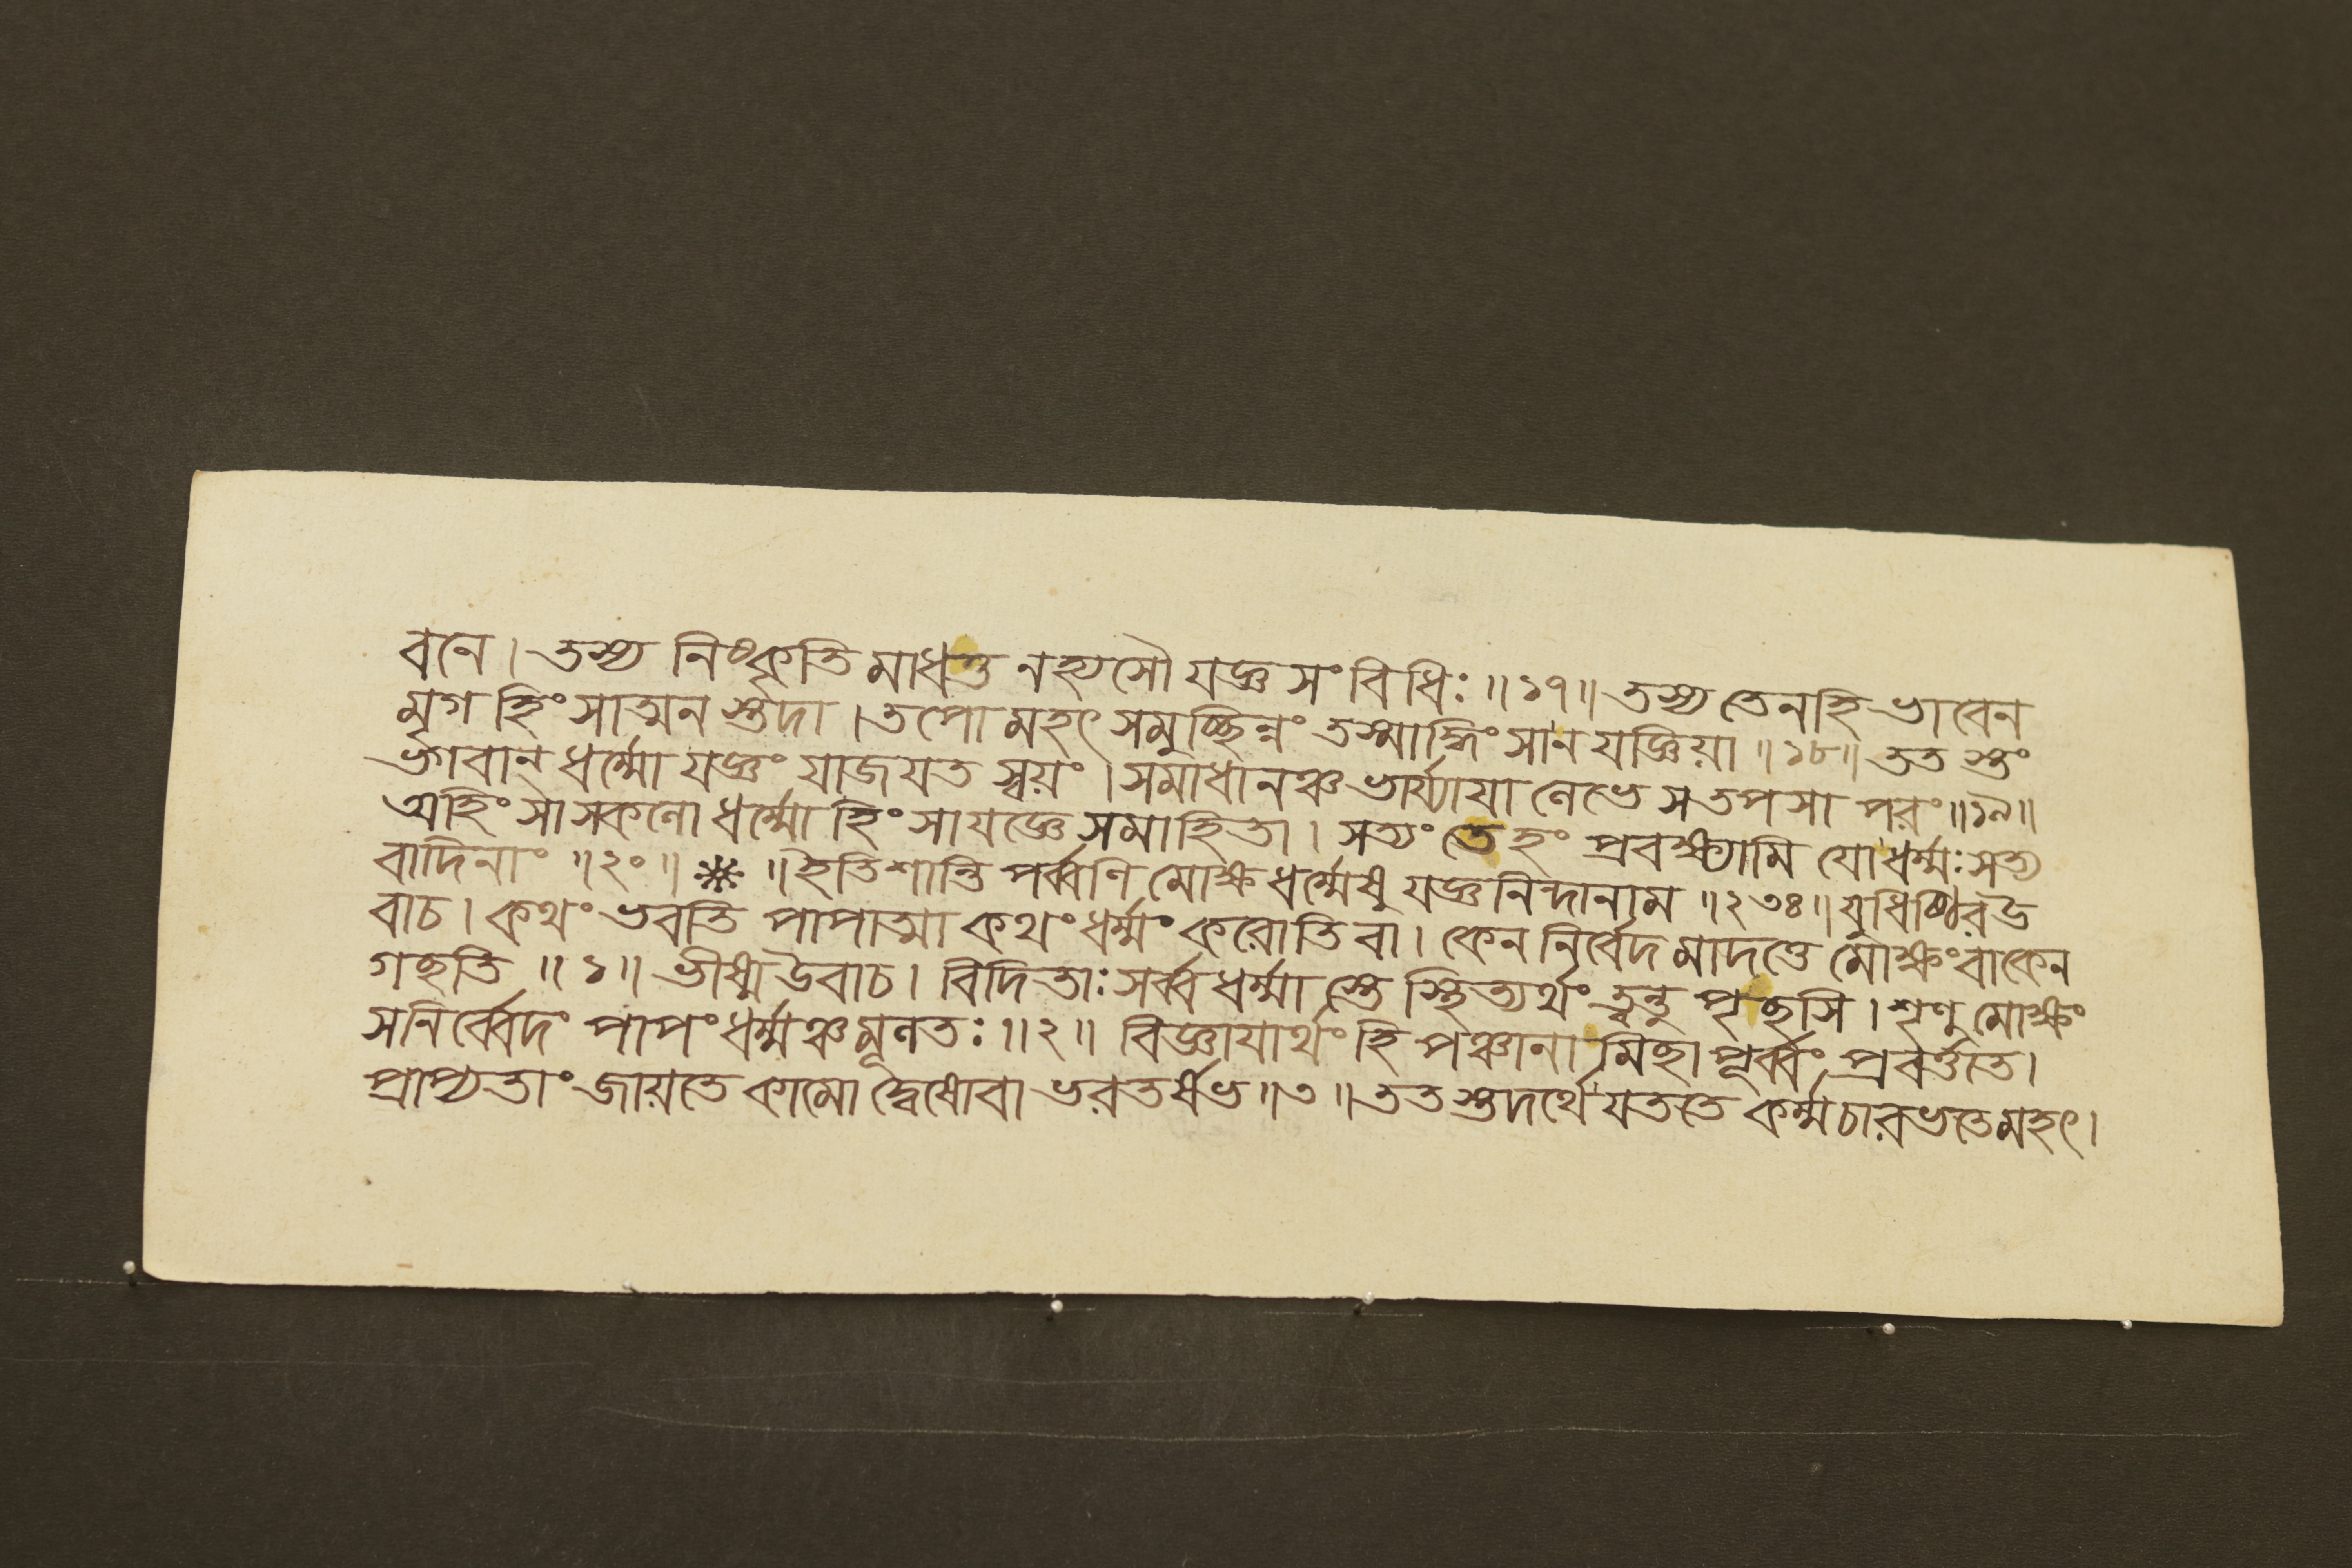 বনে। তস্য নিষ্কৃতি মাধত্ত নহ্যসৌ যজ্ঞ সংবিধিঃ॥১৭॥ তস্য তেনহি ভাবেন
মৃগ হিংসাত্মন স্তুদা। তপো মহৎ সমুচ্ছিন্নং তস্মাদ্ধিংসান যজ্ঞিয়া॥১৮॥ তত স্তং
ভগবান্ ধর্ম্মো যজ্ঞং যাজযত স্বয়ং। সমাধানঞ্চ ভার্য্যাযা লেভে সতপসা পরং॥১৯॥
অহিংসাসকলো ধর্ম্মো হিংসাযজ্ঞে সমাহিতা। সত্যং তে হং প্রবক্ষ্যামি যো ধর্ম্মঃ সত্য
বাদিনাং॥২০॥ * ॥ইতিশান্তি পর্ব্বণি মোক্ষ ধর্ম্মেষু যজ্ঞনিন্দানাম॥২৩৪॥ যুধিষ্ঠিরউ
বাচ। কথং ভবতি পাপাত্মা কথং ধর্ম্মং করোতি বা। কেন নির্বেদ মাদত্তে মোক্ষং বাকেন
গছতি॥১॥ ভীষ্মউবাচ। বিদিতাঃ সর্ব্ব ধর্ম্মা স্তে স্থিত্যর্থং ত্বন্তু পৃছসি। শৃণু মোক্ষং
সনির্ব্বেদং পাপং ধর্ম্মঞ্চ মূলতঃ॥২॥ বিজ্ঞাযার্থং হি পঞ্চানা মিছা পূর্ব্বং প্রবর্ত্ততে।
প্রাপ্যতাং জায়তে কামো দ্বেষোবা ভরতর্ষভ॥৩॥ তত স্তদর্থে যততে কর্ম্ম চারভতেমহৎ।